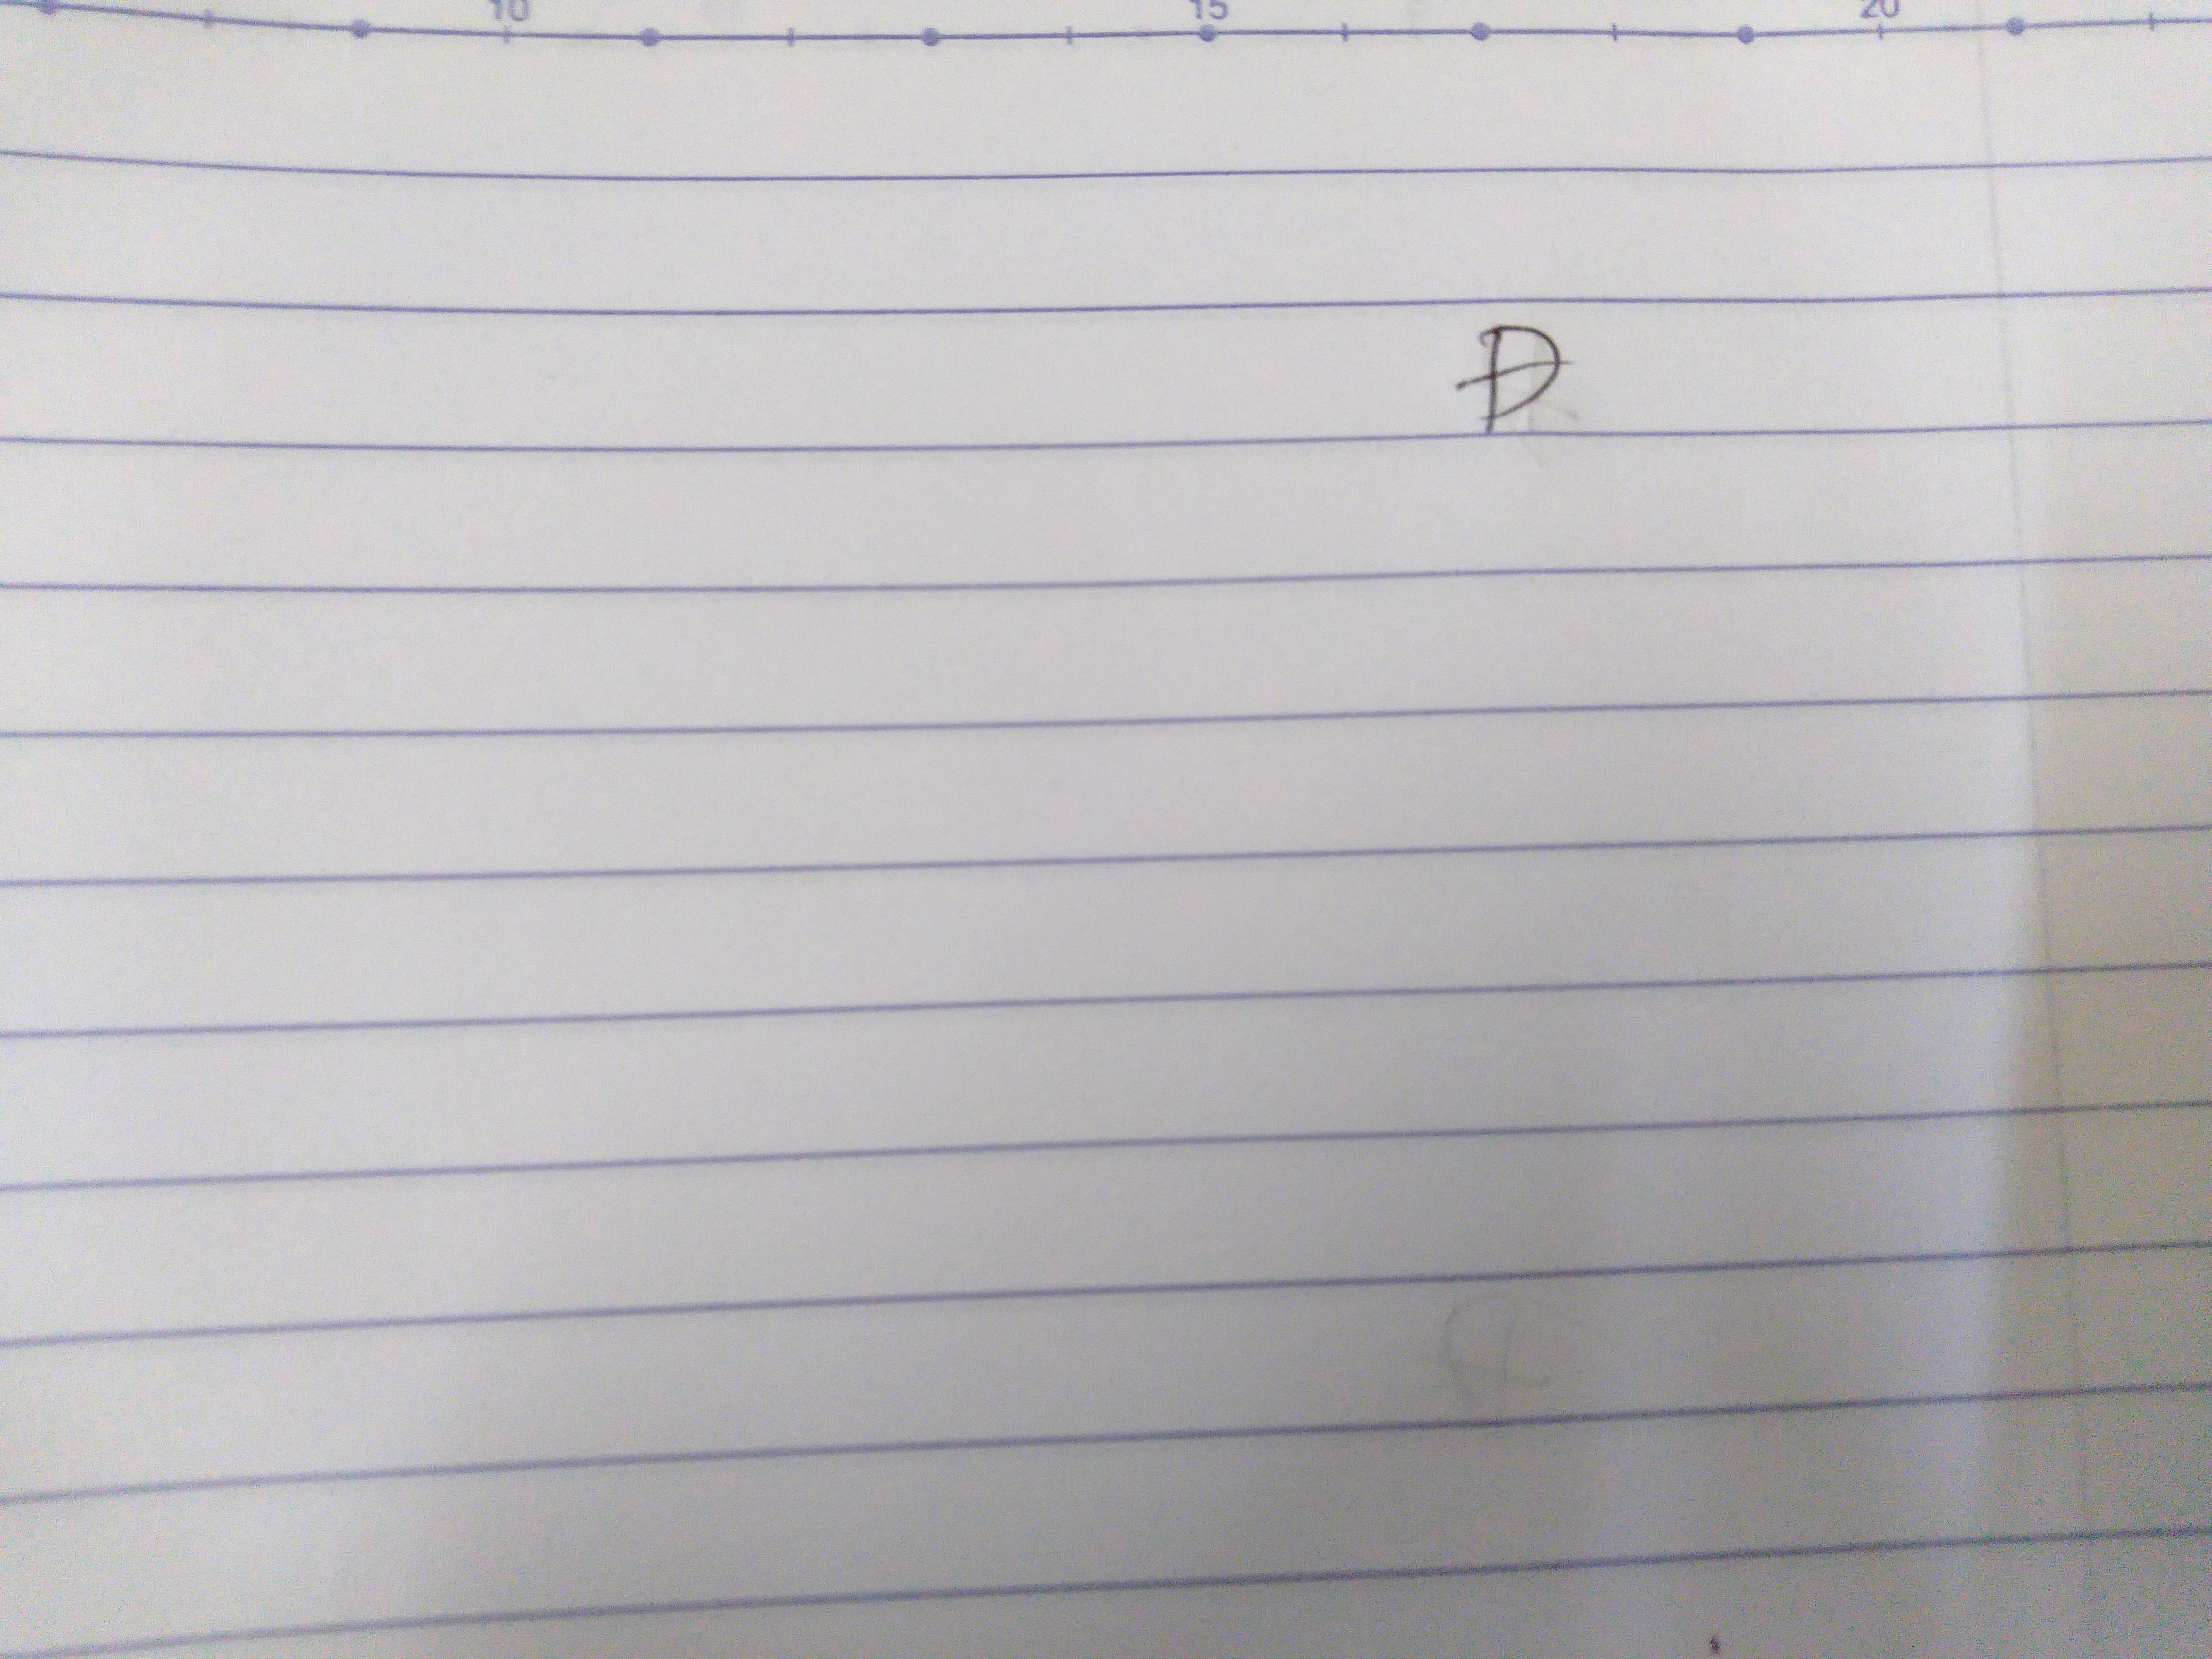 10 15 20
Đ